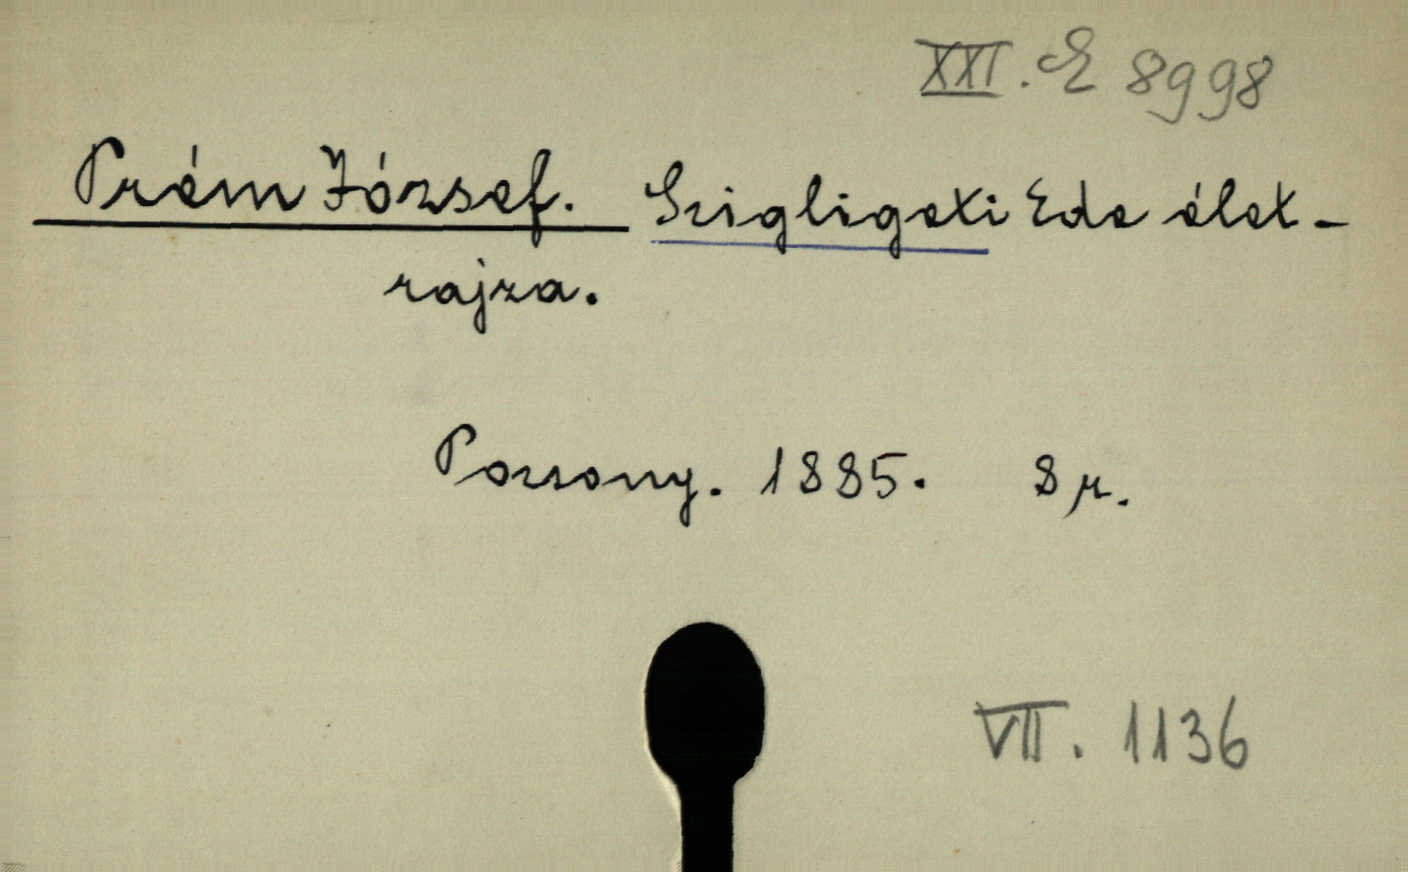 XXI. E 8998
Prém József. Szigligeti Ede élet-
rajza.
Pozsony. 1885. 8 r.
VII. 1136